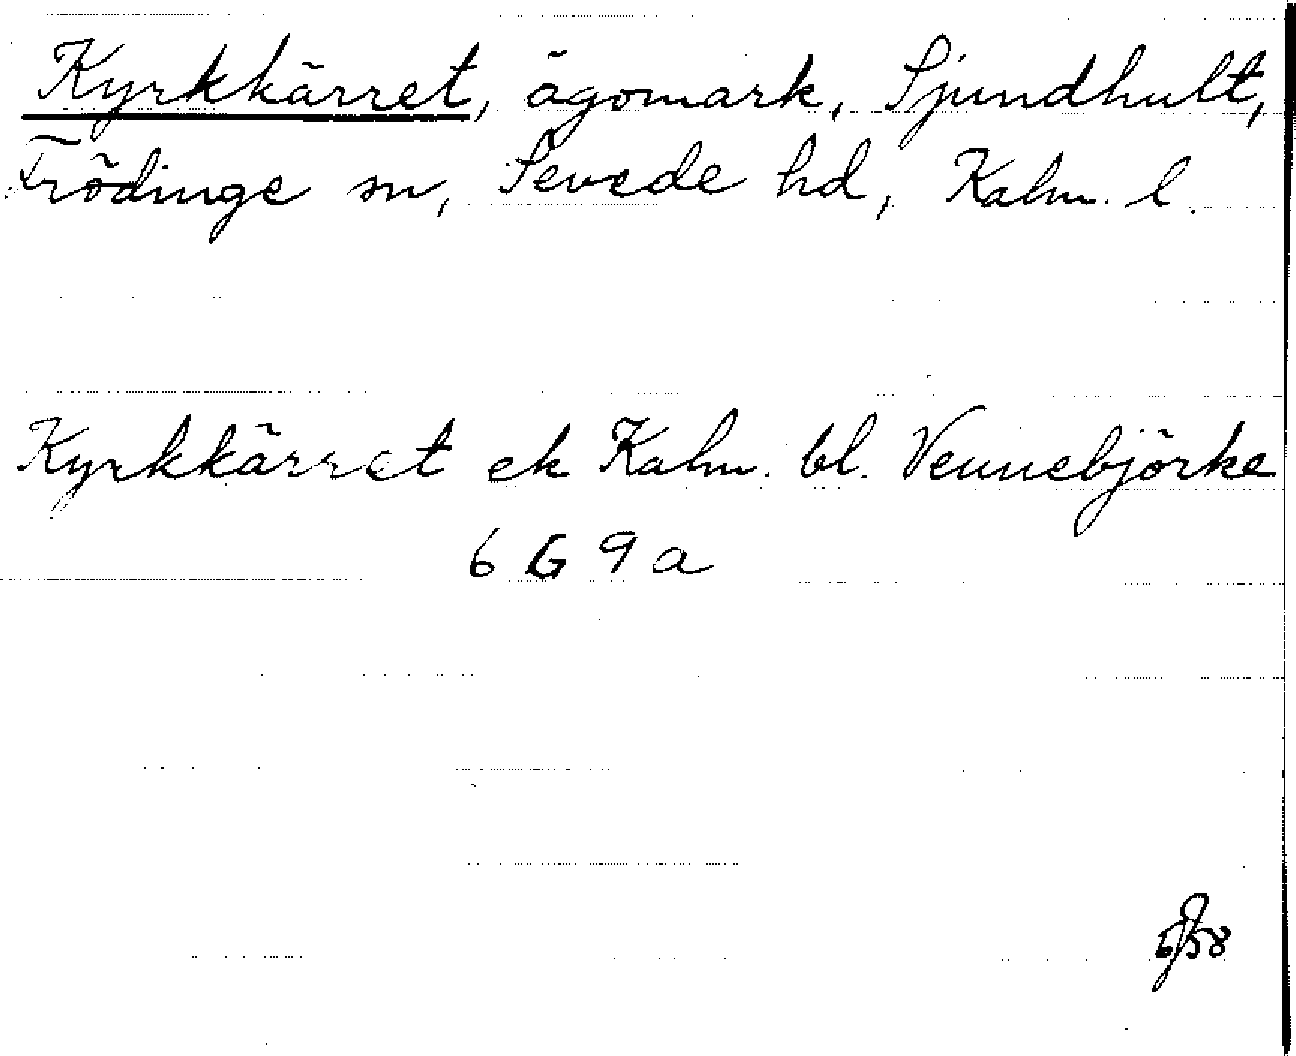 Kyrkkärret, ägomark, Sjundhult,
Frödinge sn, Sevede hd, Kalm. l.
Kyrkkärret ek Kalm. bl. Vennebjörke
6 G 9 a